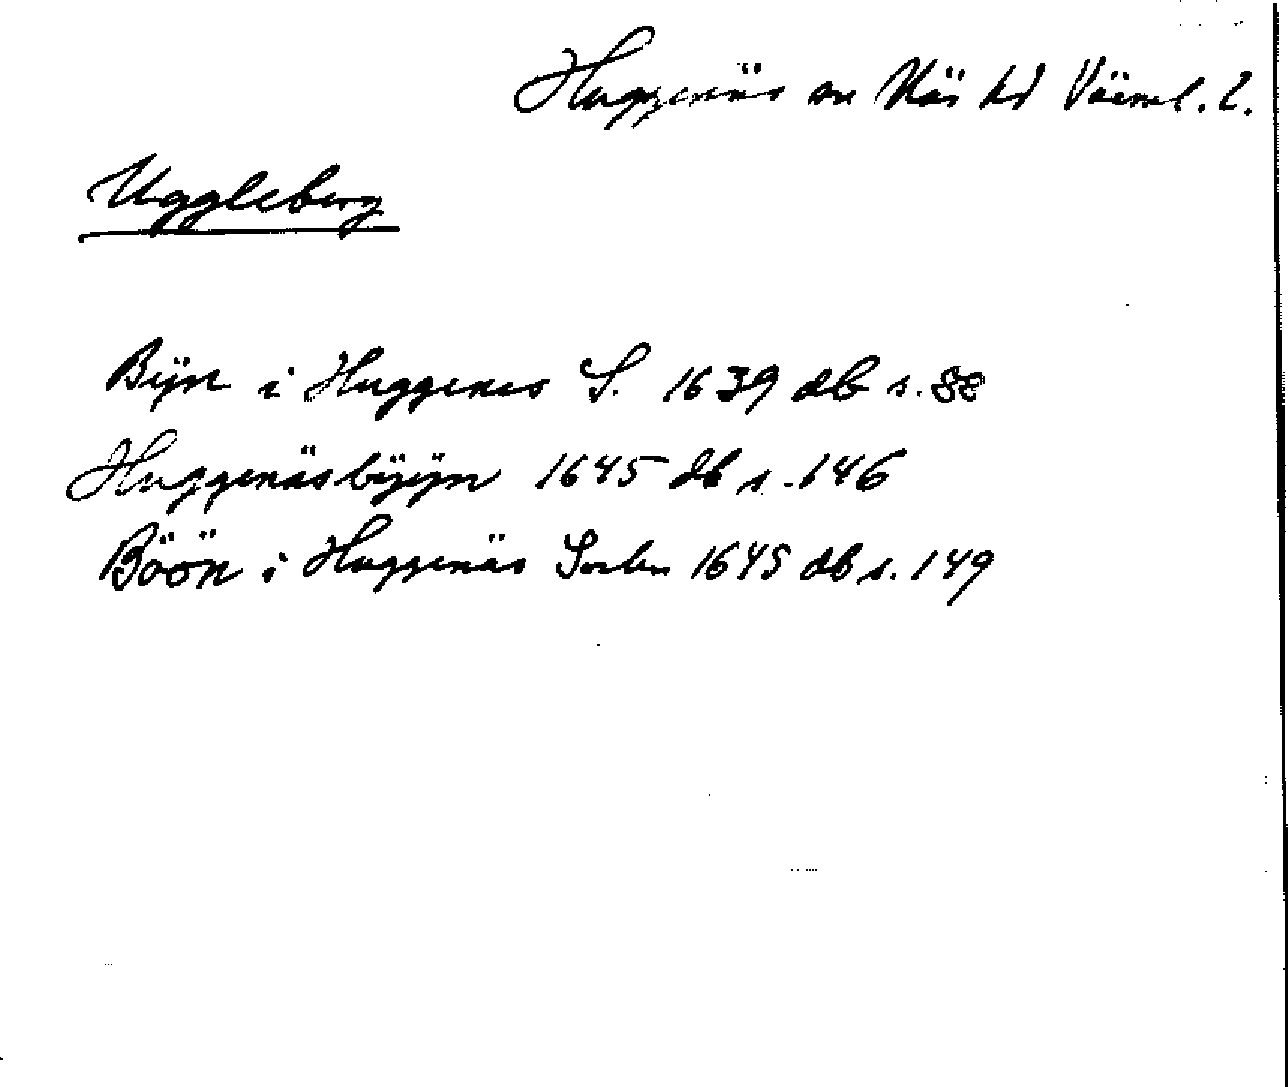 Huggenäs sn Näs hd Värml. l.
Uggleberg
Bÿn i Huggenes S. 1639 db s. 88
Huggenäsbÿÿn 1645 db s. 146
Böön i Huggenäs Sochn 1645 db s. 149